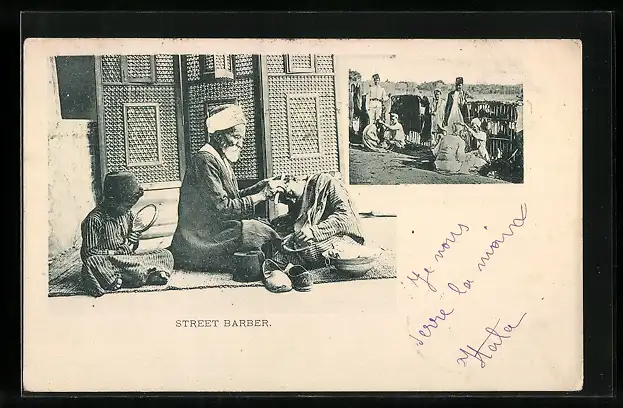 STREET BARBER.
Je vous
serre la main